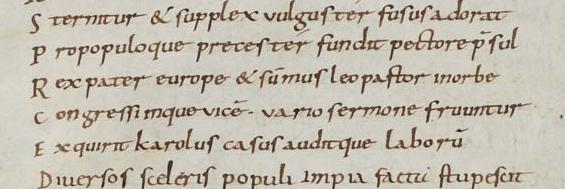 S ternitur & supplex vulgus ter fusus adorat
P ro populoque preces ter fundit pectore p̄sul
R ex pater europe & sūmus leo pastor in orbe
C ongressi inque vicē· vario sermone fruuntur
E xquirit karolus casus auditque laborū
D iuersos sceleris populi impia factū stupescit